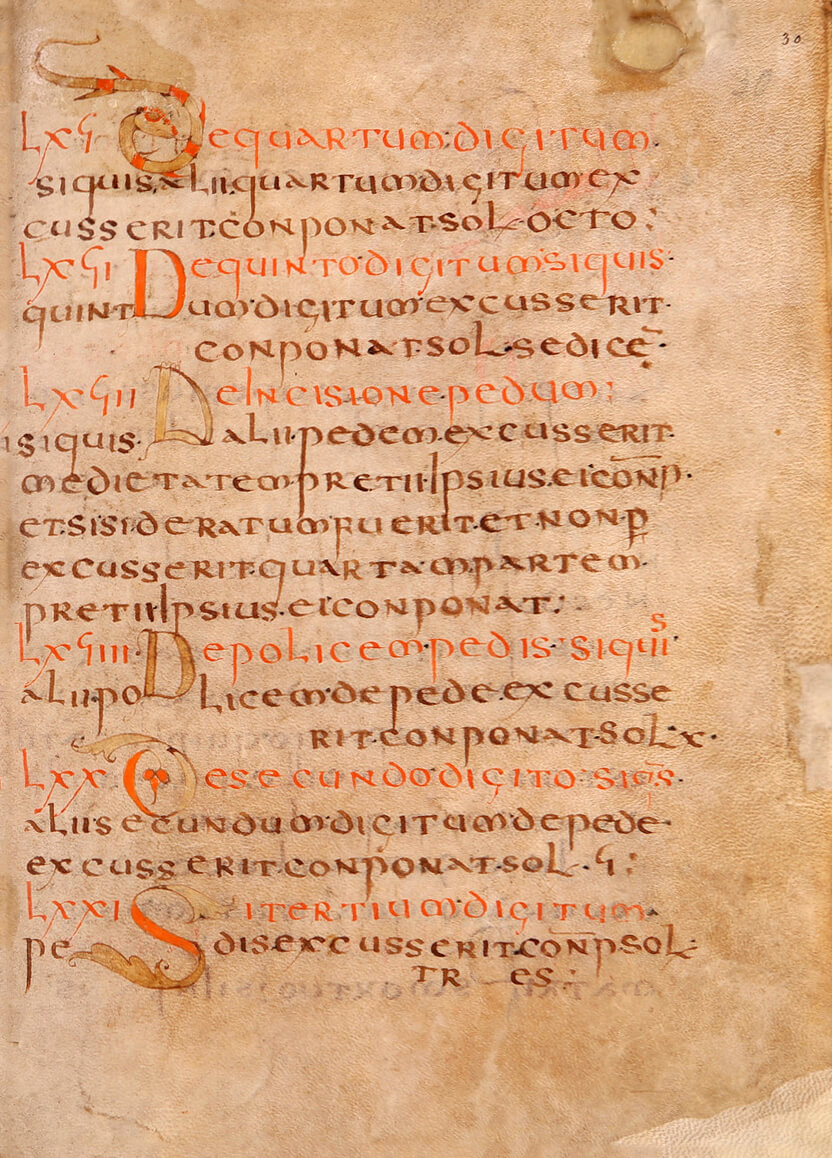 30
LXϚ De quartum·digitum·
siquis·alii·quartum digitum ex
cusserit·conponat·sol·octo:
LXϚI De quinto·digitum·siquis·
quintum·digitum excusserit·
conponat·sol·sedice·
LXϚII De Incisione·pedum:
siquis· alii·pedem·excusserit·
medietatem pretii Ipsius·ei con̄p·
et·si sideratum fuerit·et·non p
excusserit·quartam·partem·
pretii Ipsius·ei conponat:
LXϚIII· De pollicem·pedis·siquis·
alii·pollicem de pede·excusse
rit·conponat·sol·x·
LXX De secundo digito·siq̄s·
alii secundum digitum de pede·
excusserit·conponat·sol·Ϛ:
LXXI Si tertium digitum·
pedis excusserit·con̄p sol·
tres: